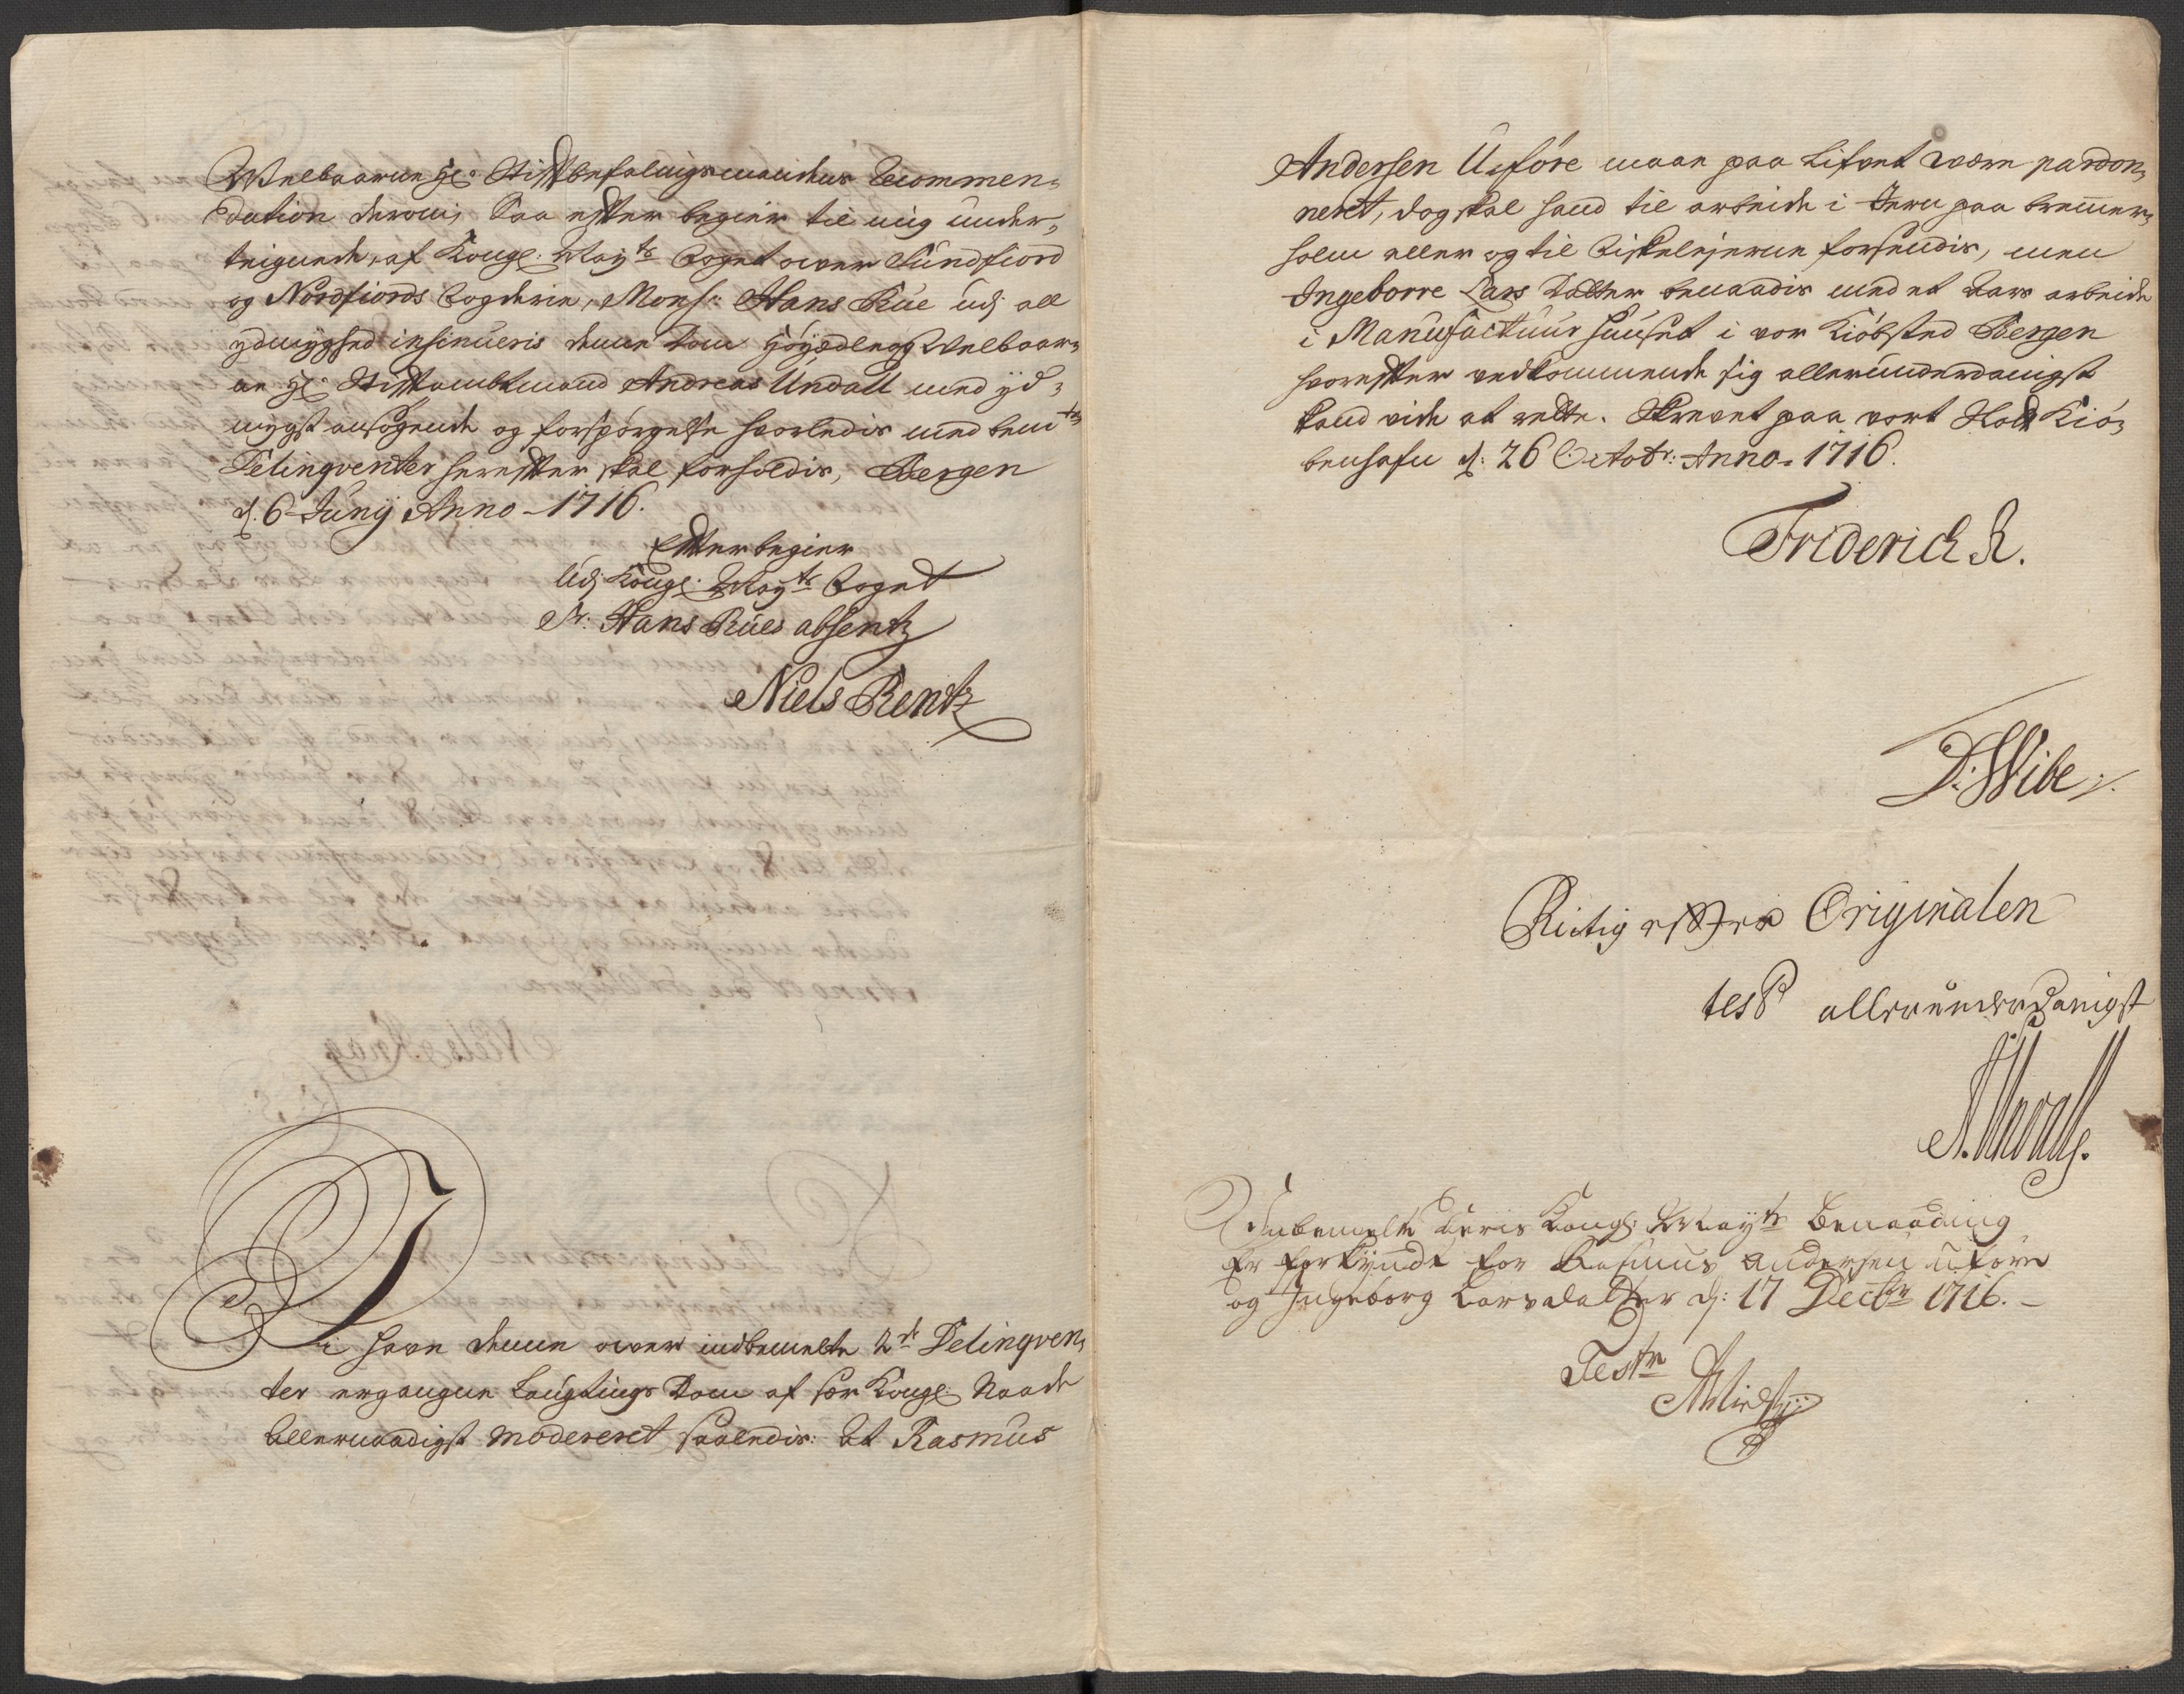 Welbaarne Hr. Stiftbefalingsmandens Recommen-
dation derom, Saa efter begier til mig under-
teignede, af Kongl: Mayts Foget over Sundfiord
og Nordfiords Fogderie, Monsr: Hans Rüe udj all
ydmyghed insinueris denne Dom Höyædle og Welbaar-
ne Hr. Stiftambtmand Andreas Undall med yd-
mygst ansögende og forspörgelse hvorledis med bemte
Delinqventer herefter skal forholdis, Bergen
d: 6 Junij Anno 1716.
Efter begier
Udj Kongl: Mayts Foget
Sr: Hans Rües absentz
Niels Rentz
Vi have denne over indbemelte 2de Delinqven-
ter ergangne Laugtings Dom af sær Kongl: Naade
Allernaadigst modereret saaledis: At Rasmus
Andersen Uföre maae paa Lifvet være pardon-
neret, dog skal hand til arbeide i Jern paa bremer-
holm eller og til Fiskelejerne forsendis, men
Ingeborre Lars Datter benaadis med et Aars arbeide
i Manufactuur Huuset i vor Kiöbsted Bergen
hvorefter vedkommende sig allerunderdanigst
hand vide at rette. Skrevet paa vort Slott Kiö-
benhafn d: 26 Octobr: Anno 1716.
Friderich R.
D: Wibe
Rictig efter Originalen
test allerunderdanigst
A. Undall.
Indbemelte deris Kongl: Mayts Benaading
Er forkyndt for Rasmus Andersen Uföre
og Ingeborg Larsdatter d: 17 Decbr 1716.
Testr